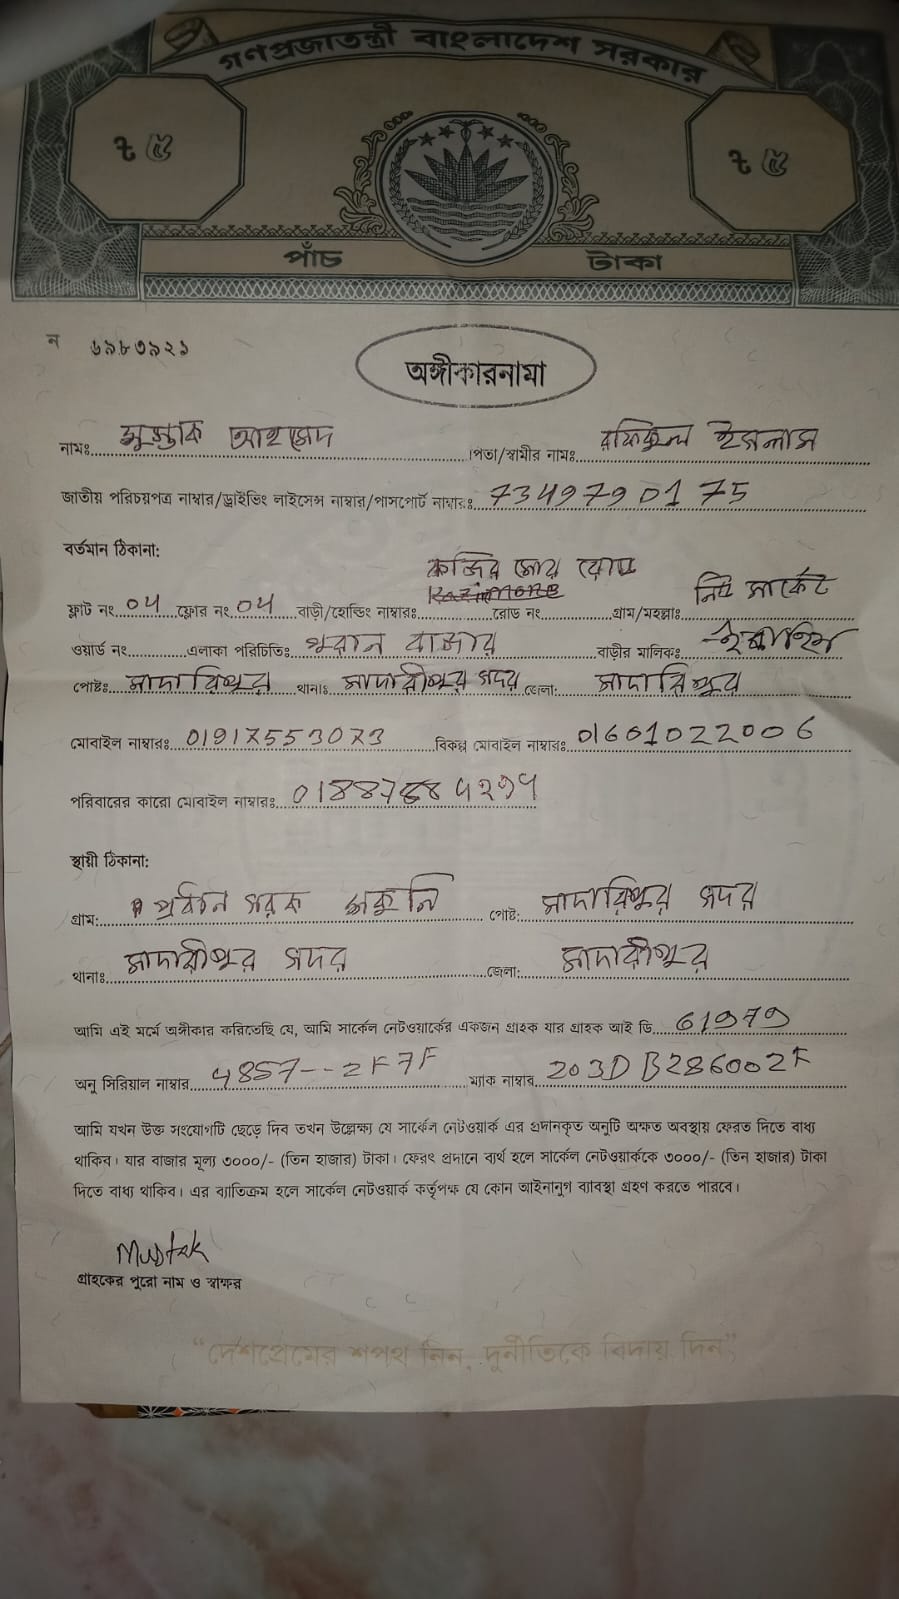 গণপ্রজাতন্ত্রী বাংলাদেশ সরকার
৳ ৫ ৳ ৫
পাঁচ টাকা
ন ৬৯৮৩৯২১
অঙ্গীকারনামা
নামঃ মুস্তাক আহমেদ পিতা/স্বামীর নামঃ রফিকুল ইসলাম
জাতীয় পরিচয়পত্র নাম্বার/ড্রাইভিং লাইসেন্স নাম্বার/পাসপোর্ট নাম্বারঃ 7349790175
বর্তমান ঠিকানা:
ফ্লাট নং 04 ফ্লোর নং 04 বাড়ী/হোল্ডিং নাম্বারঃ কাজির মোর রোড রোড নং গ্রাম/মহল্লাঃ নিউ মার্কেট
ওয়ার্ড নং এলাকা পরিচিতিঃ পুরান বাজার বাড়ীর মালিকঃ ইব্রাহিম
পোষ্টঃ মাদারিপুর থানাঃ মাদারীপুর সদর জেলা: মাদারিপুর
মোবাইল নাম্বারঃ বিকল্প মোবাইল নাম্বারঃ 01601022006
পরিবারের কারো মোবাইল নাম্বারঃ
স্থায়ী ঠিকানা:
গ্রাম: সরক শকুনি পোষ্ট: মাদারিপুর সদর
থানাঃ মাদারীপুর সদর জেলা: মাদারীপুর
আমি এই মর্মে অঙ্গীকার করিতেছি যে, আমি সার্কেল নেটওয়ার্কের একজন গ্রাহক যার গ্রাহক আই ডি 61979
অনু সিরিয়াল নাম্বার 4857--2F7F ম্যাক নাম্বার 203DB286002F
আমি যখন উক্ত সংযোগটি ছেড়ে দিব তখন উল্লেক্ষ্য যে সার্কেল নেটওয়ার্ক এর প্রদানকৃত অনুটি অক্ষত অবস্থায় ফেরত দিতে বাধ্য
থাকিব। যার বাজার মূল্য ৩০০০/- (তিন হাজার) টাকা। ফেরৎ প্রদানে ব্যর্থ হলে সার্কেল নেটওয়ার্ককে ৩০০০/- (তিন হাজার) টাকা
দিতে বাধ্য থাকিব। এর ব্যাতিক্রম হলে সার্কেল নেটওয়ার্ক কর্তৃপক্ষ যে কোন আইনানুগ ব্যাবস্থা গ্রহণ করতে পারবে।
Mustak
গ্রাহকের পুরো নাম ও স্বাক্ষর
“দেশপ্রেমের শপথ নিন, দুর্নীতিকে বিদায় দিন”